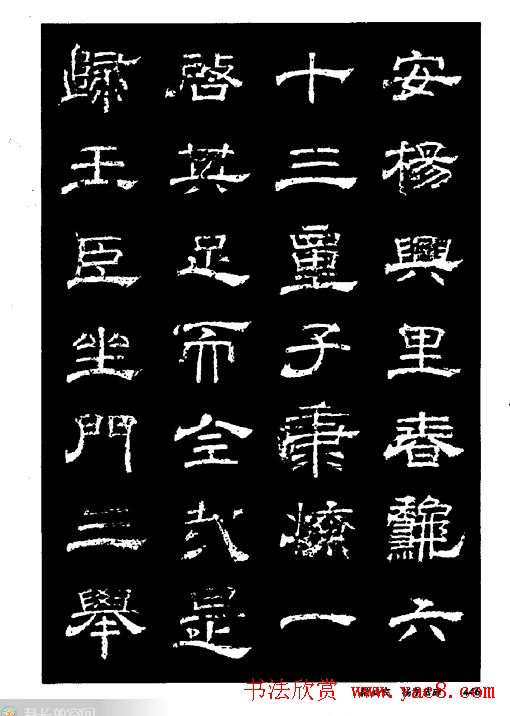 安楊興里春龝六
十三童子秉燎一
啓其足而全哉是
歸王臣坐門三舉
书法欣赏 www.yac8.com
科长的空间